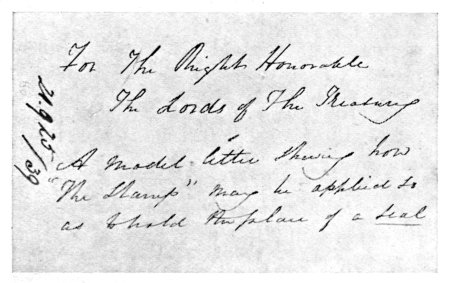 For The Right Honorable
The Lords of The Treasury
A model letter shewing how
"The Stamp" may be applied so
as to hold the place of a seal
21,925/39